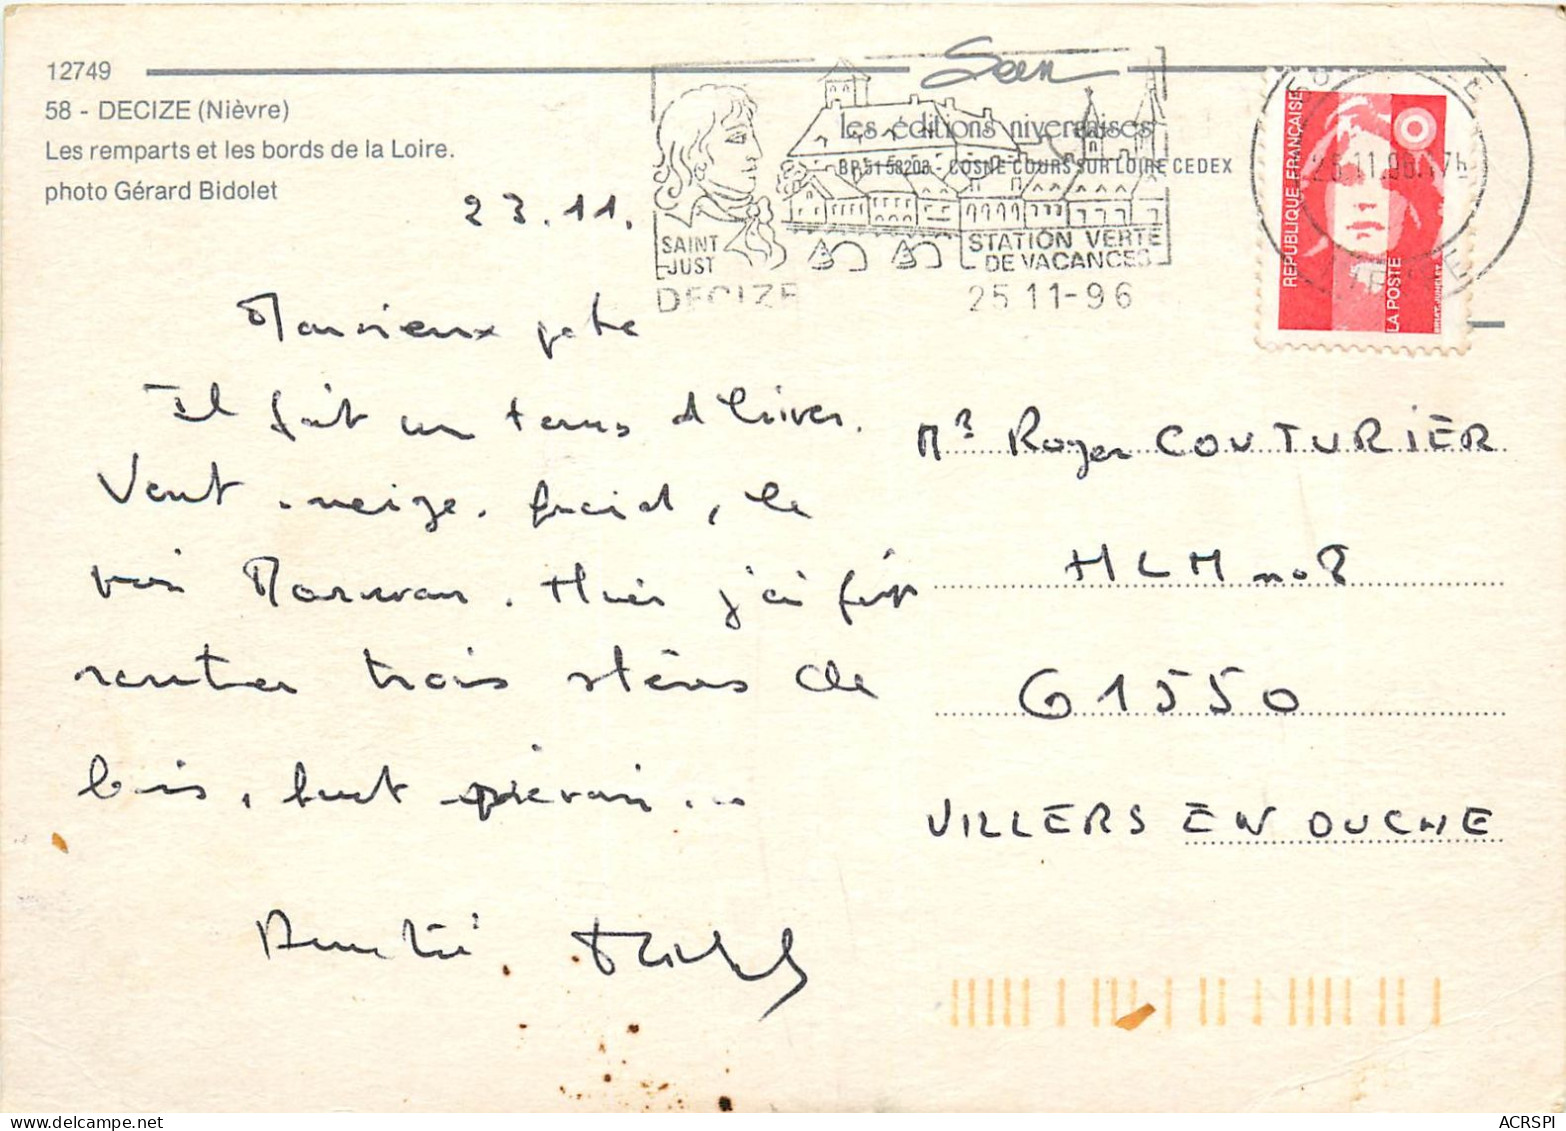 12749
58 - DECIZE (Nièvre)
Les remparts et les bords de la Loire.
photo Gérard Bidolet
les éditions nivernaises
BP 51 58203 - COSNE COURS SUR LOIRE CEDEX
SAINT
JUST
STATION VERTE
DE VACANCES
DECIZE
25 11-96
REPUBLIQUE FRANÇAISE
LA POSTE
25.11.96.17h
23.11.
Il fait un temps d'hiver.
Vent, neige, froid, le
Morvan. Hier j'ai fait
rentrer trois stères de
bois, faut prévoir...
Amitié
Mr Roger COUTURIER
HLM no 8
61550
VILLERS EN OUCHE
ACRSPI